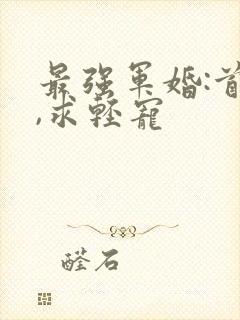 最强军婚:首
,求轻宠
醛石